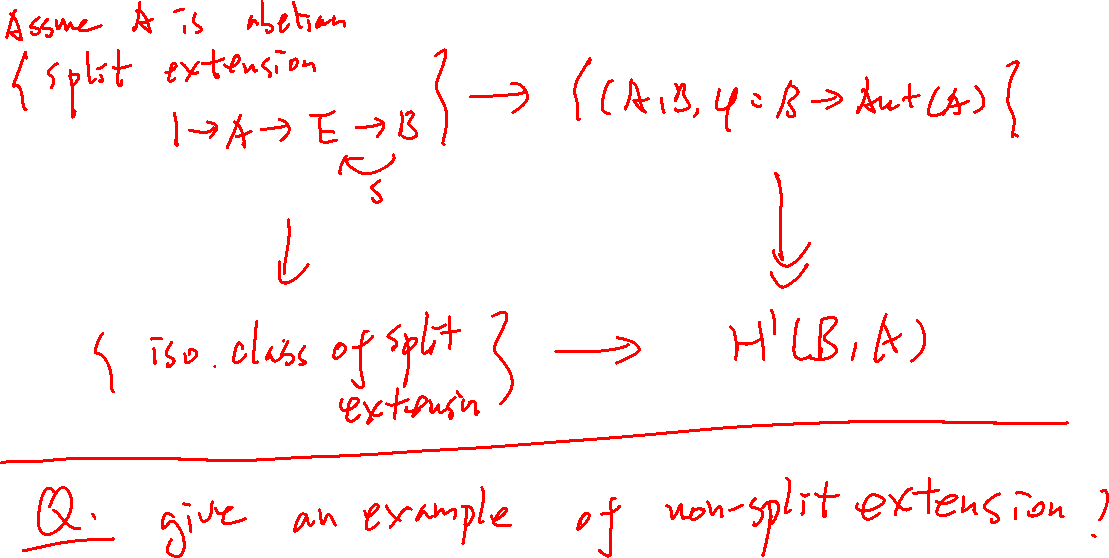 Assme A is abelian
{ split extension
1 → A → E → B } → { (A, B, φ: B → Aut(A) }
s
{ iso. class of split extensin } → H¹(B, A)
Q. give an example of non-split extension?